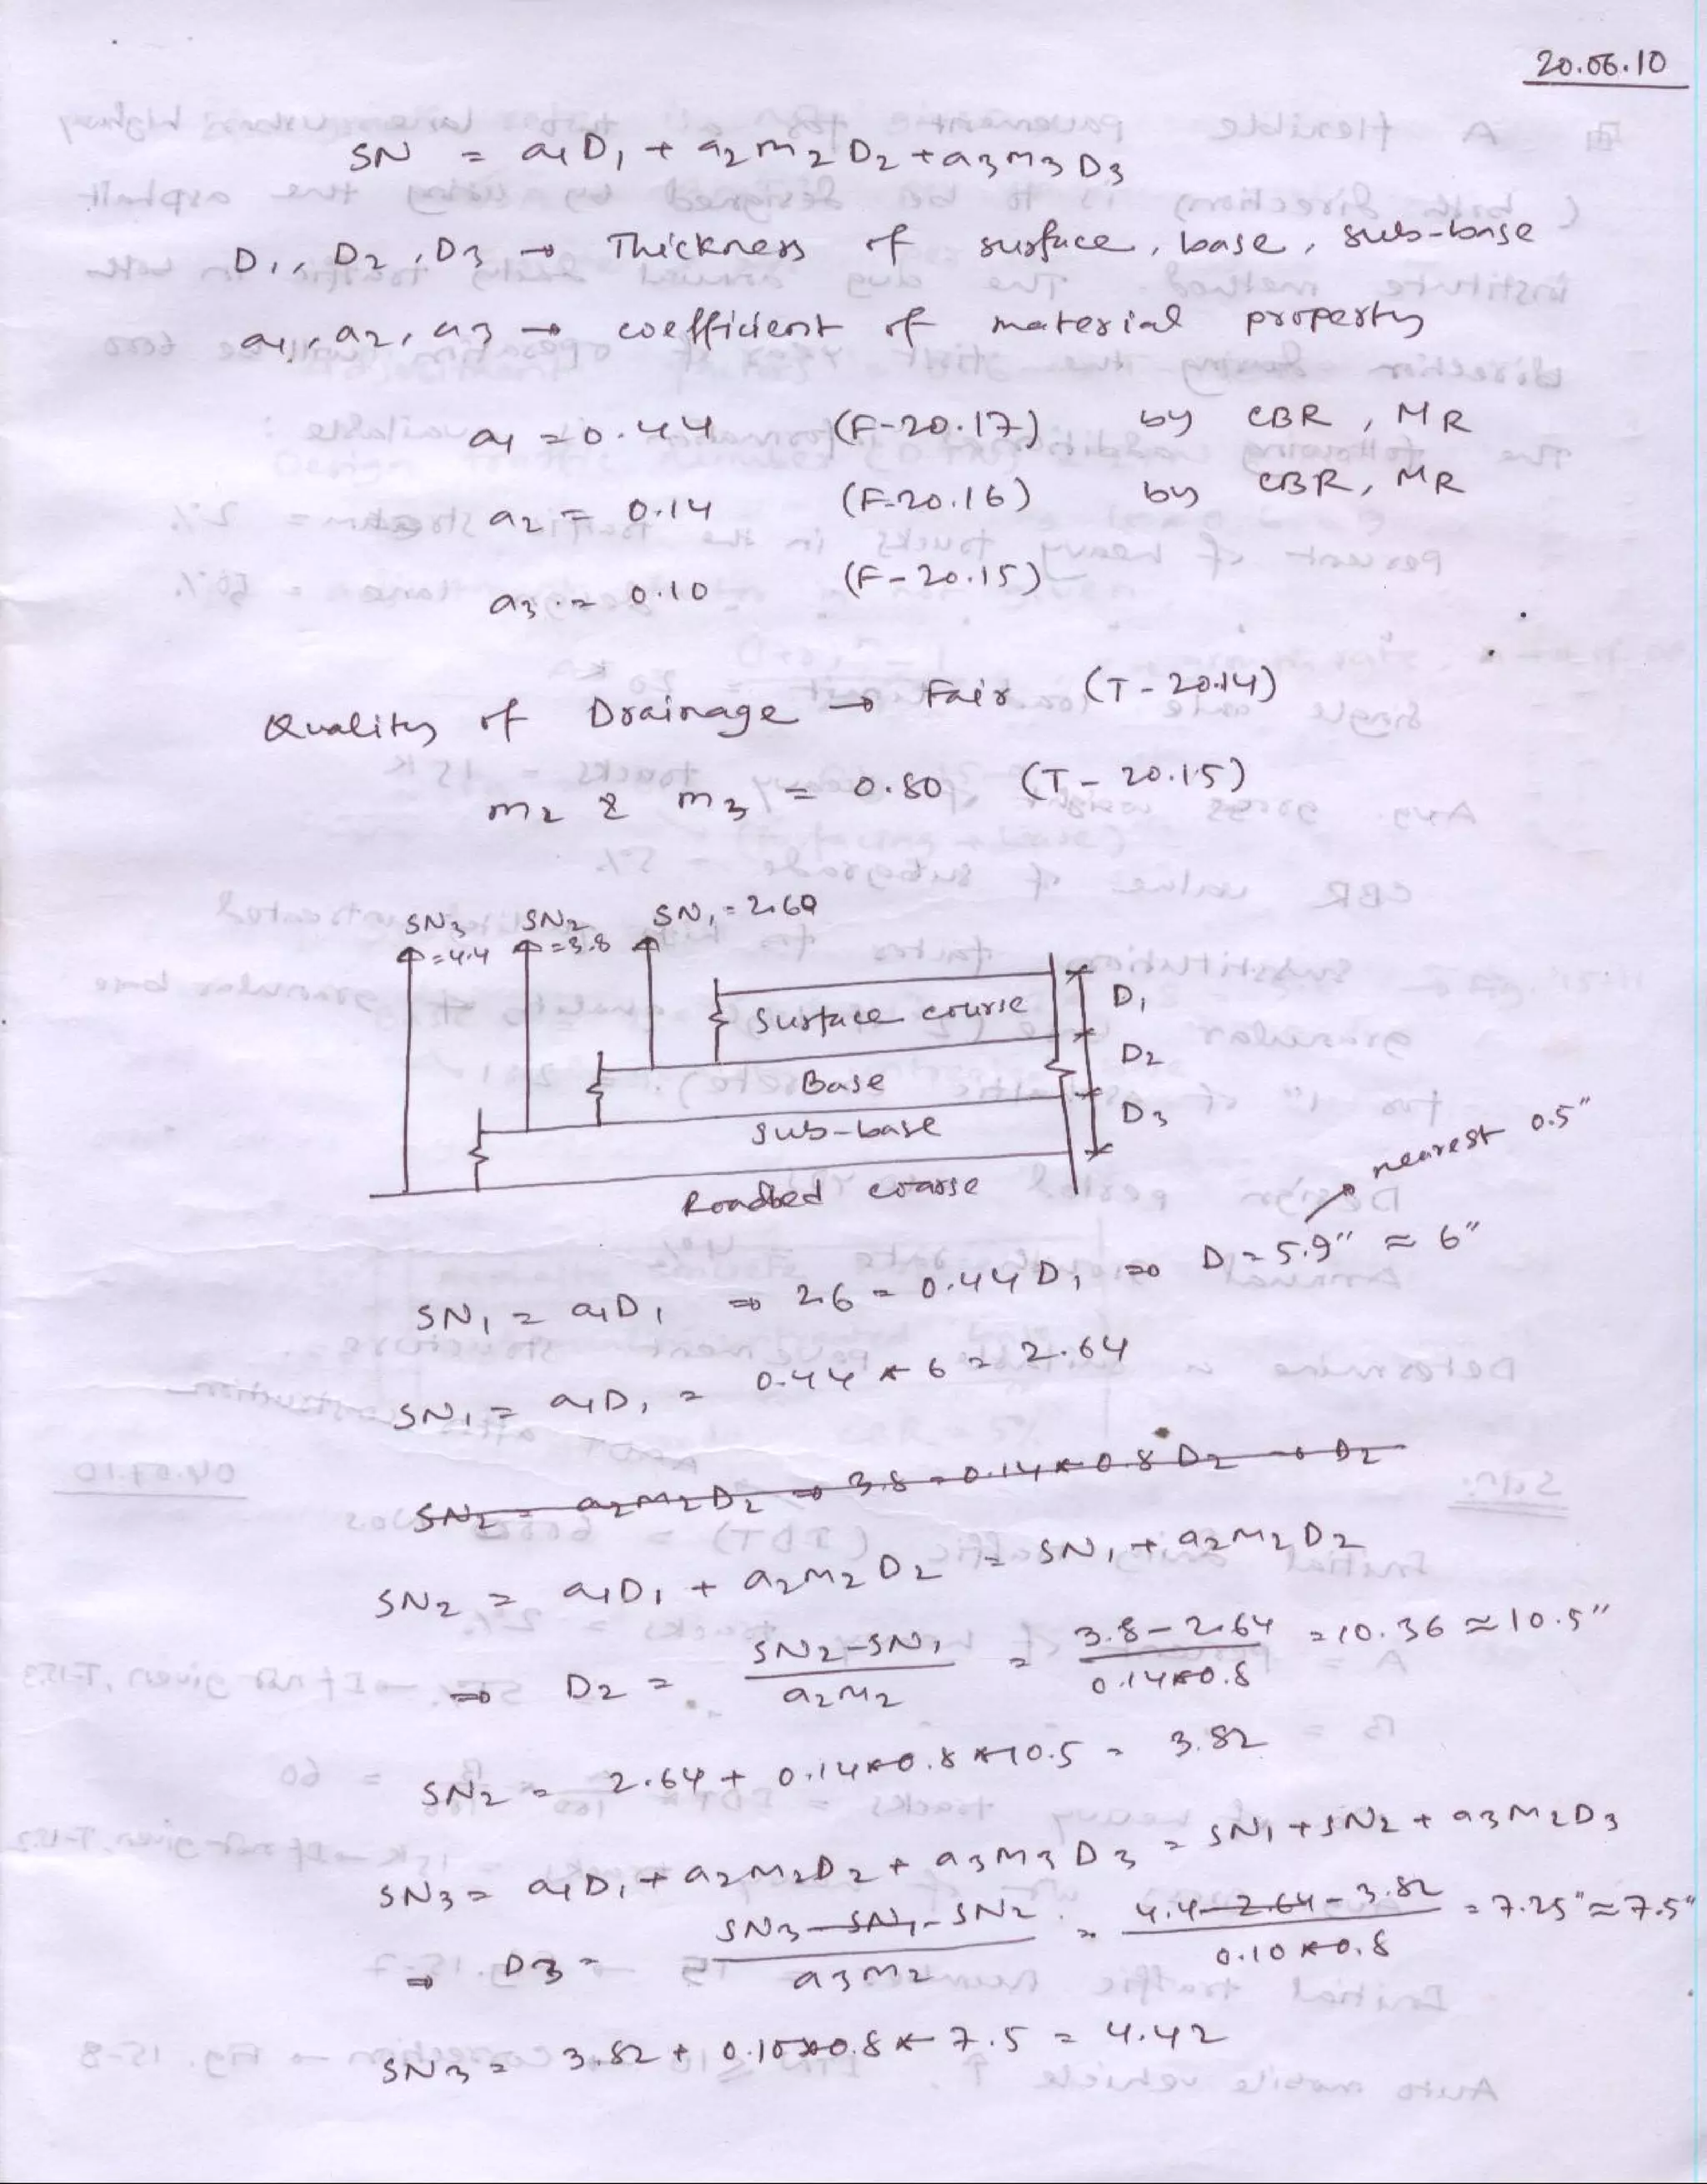 20.06.10
SN = a1D1 + a2m2D2 + a3m3D3
D1, D2, D3 → Thickness of surface, base, sub-base
a1, a2, a3 → coefficient of material property
a1 = 0.44 (F-20.17) by CBR, MR
a2 = 0.14 (F-20.16) by CBR, MR
a3 = 0.10 (F-20.15)
Quality of Drainage → Fair (T-20.14)
m2 & m3 = 0.80 (T-20.15)
SN3 = 4.4 SN2 = 3.8 SN1 = 2.60
Surface course D1
Base D2
Sub-base D3
Roadbed coarse
nearest 0.5"
SN1 = a1D1 ⇒ 2.6 = 0.44D1 ⇒ D1 = 5.9" ≈ 6"
SN1 = a1D1 = 0.44 * 6 = 2.64
SN2 = a2M2D2 ⇒ 3.8 = 0.14 * 0.8 D2 ⇒ D2
SN2 = a1D1 + a2M2D2 = SN1 + a2M2D2
⇒ D2 = (SN2-SN1)/(a2M2) = (3.8-2.64)/(0.14*0.8) = 10.36 ≈ 10.5"
SN2 = 2.64 + 0.14*0.8*10.5 = 3.82
SN3 = a1D1 + a2M2D2 + a3M3D3 = SN1 + SN2 + a3M2D3
⇒ D3 = (SN3-SN1-SN2)/(a3M2) = (4.4-2.64-3.82)/(0.10*0.8) = 7.25" ≈ 7.5"
SN3 = 3.82 + 0.10*0.8*7.5 = 4.42